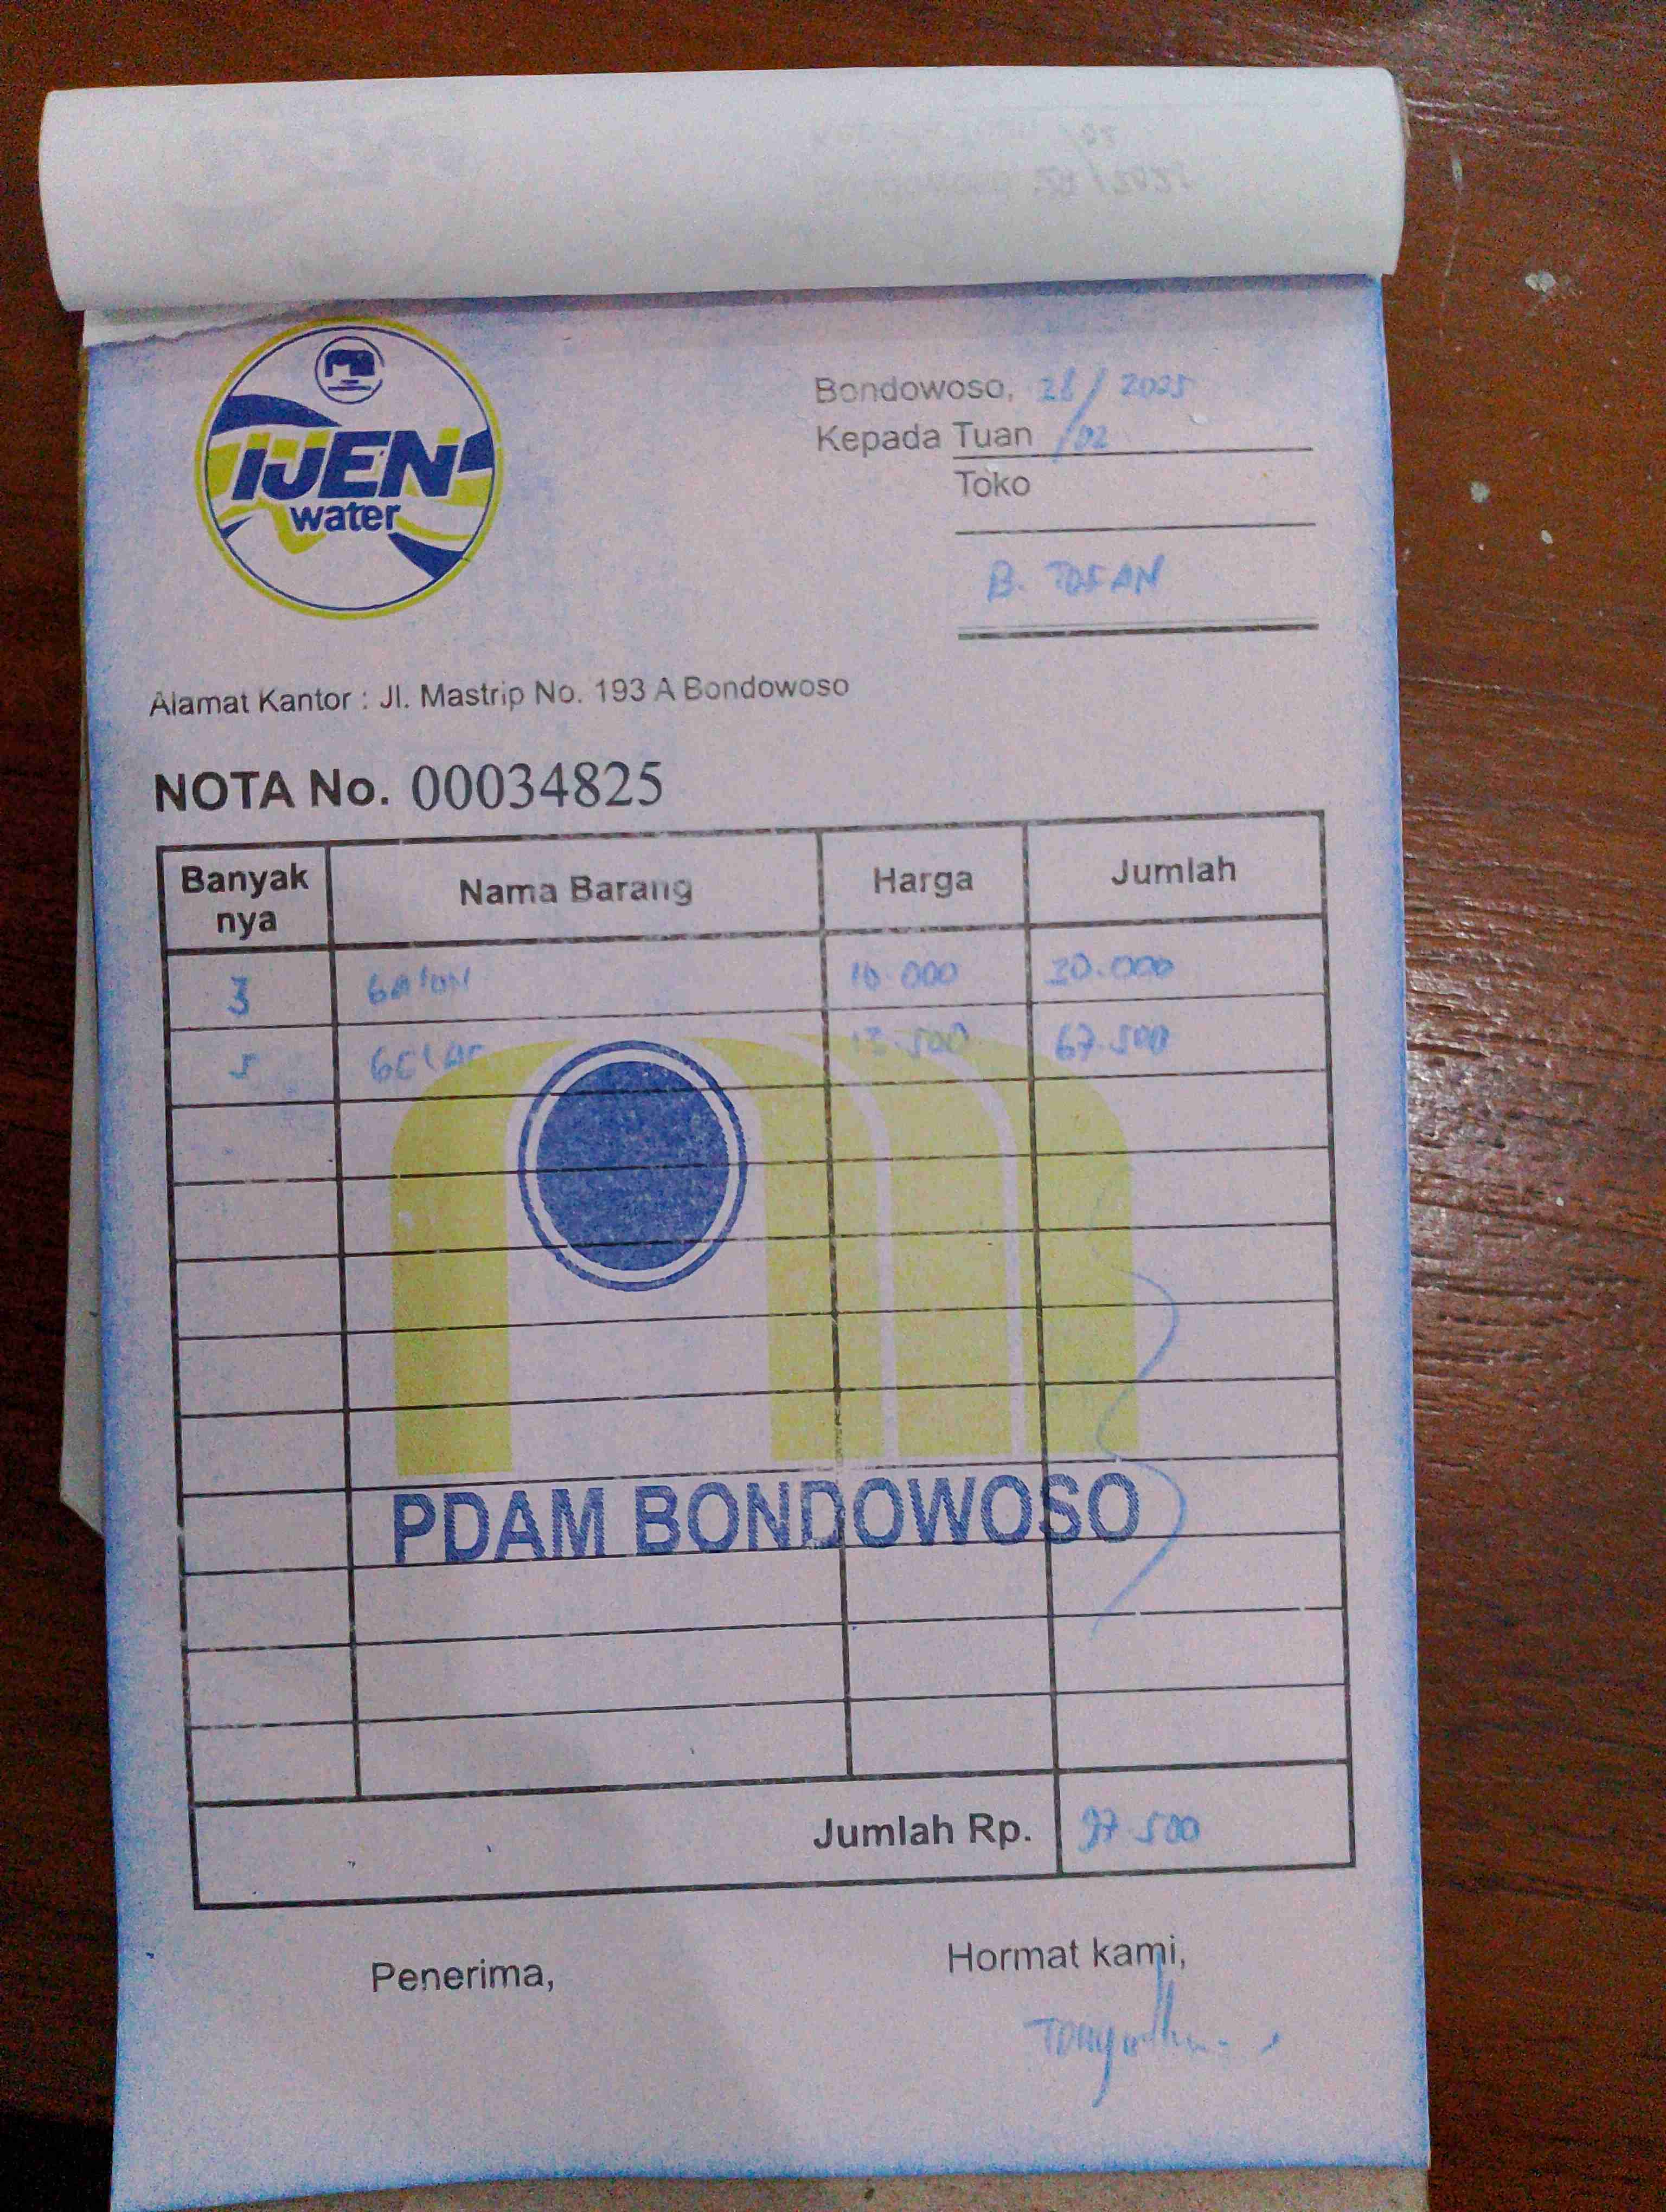 IJEN
water
Bondowoso, 28/02 2025
Kepada Tuan
Toko
B. TOSAN
Alamat Kantor : Jl. Mastrip No. 193 A Bondowoso
NOTA No. 00034825
Banyak nya Nama Barang Harga Jumlah
3 GAlON 10.000 30.000
5 GElAS 13.500 67.500
PDAM BONDOWOSO
Jumlah Rp. 97.500
Penerima,
Hormat kami,